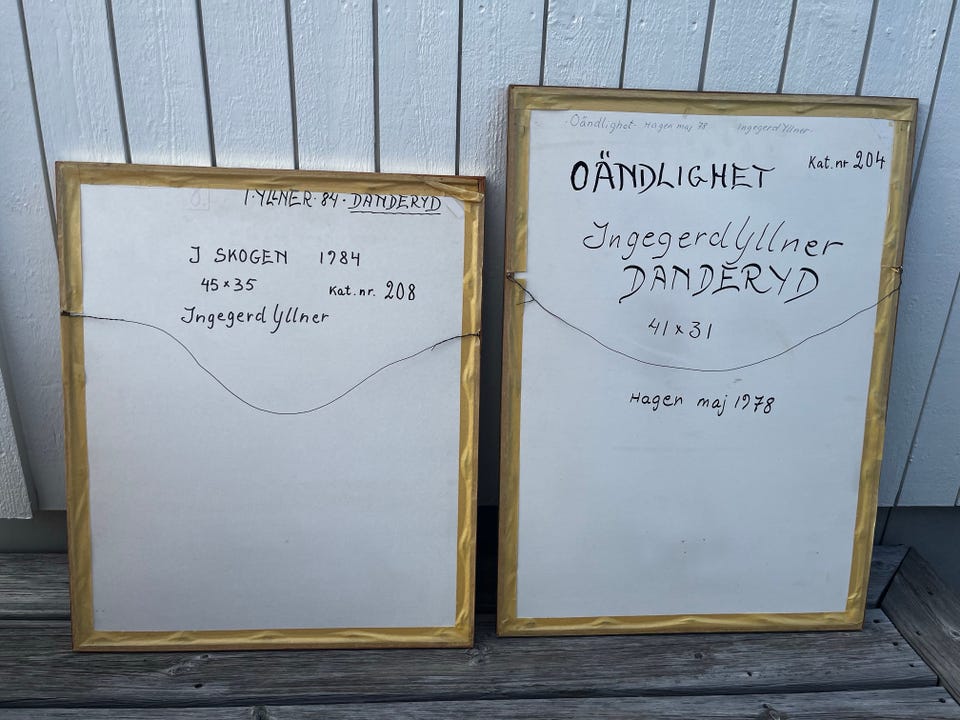 I·YLLNER·84·DANDERYD
J SKOGEN 1984
45×35
Kat.nr. 208
Ingegerd Yllner
Oändlighet - Hagen maj 78 Ingegerd Yllner
OÄNDLIGHET
Kat.nr 204
Ingegerd Yllner
DANDERYD
41×31
Hagen maj 1978